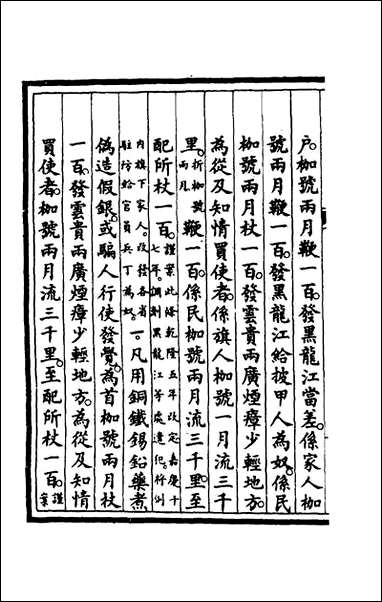 户。枷號兩月鞭一百。發黑龍江當差。係家人枷
號兩月鞭一百。發黑龍江給披甲人為奴。係民
枷號兩月杖一百。發雲貴兩廣煙瘴少輕地方。
為從及知情買使者。係旗人枷號一月流三千
里。折枷號兩月鞭一百。係民枷號兩月流三千里。至
配所杖一百。謹案此條乾隆五年改定嘉慶十七年。調劑黑龍江等處遣犯。將例
內旗下家人。改發各省駐防給官員兵丁為奴。一。凡用銅鐵錫鉛藥煮
偽造假銀。或騙人行使發覺。為首枷號兩月杖
一百。發雲貴兩廣煙瘴少輕地方。為從及知情
買使者。枷號兩月流三千里。至配所杖一百。謹案